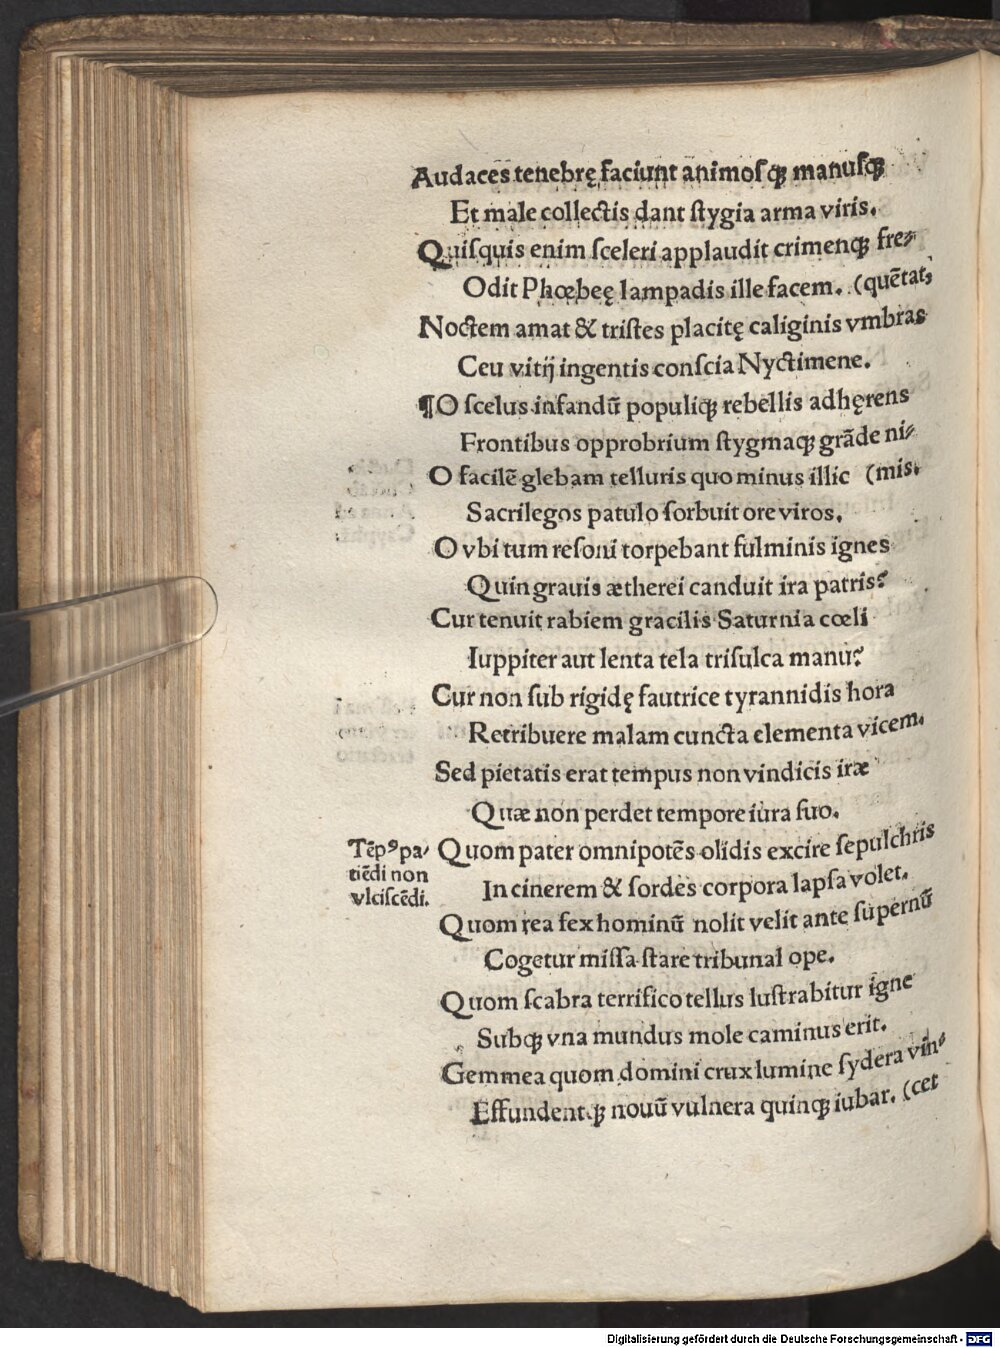 Audacēs tenebrę faciunt animoſqꝫ manuſqꝫ
Et male collectis dant ſtygia arma viris.
Quiſquis enim ſceleri applaudit crimenqꝫ fre⸗
Odit Phœbeę lampadis ille facem. (quētat,
Noctem amat & triſtes placitę caliginis vmbras
Ceu vitij ingentis conſcia Nyctimene.
¶O ſcelus infandū populiqꝫ rebellis adhęrens
Frontibus opprobrium ſtygmaqꝫ grāde ni⸗
O facilē glebam telluris quo minus illic (mis.
Sacrilegos patulo ſorbuit ore viros.
O vbi tum reſoni torpebant fulminis ignes
Quin grauis ætherei canduit ira patris?
Cur tenuit rabiem gracilis Saturnia cœli
Iuppiter aut lenta tela triſulca manu?
Cur non ſub rigidę fautrice tyrannidis hora
Retribuere malam cuncta elementa vicem.
Sed pietatis erat tempus non vindicis iræ
Quæ non perdet tempore iura ſuo.
Tēpꝰ pa⸗
tiēdi non
vlciſcēdi.
Quom pater omnipotēs olidis excire ſepulchris
In cinerem & ſordes corpora lapſa volet.
Quom rea fex hominū nolit velit ante ſupernū
Cogetur miſſa ſtare tribunal ope.
Quom ſcabra terrifico tellus luſtrabitur igne
Subqꝫ vna mundus mole caminus erit.
Gemmea quom domini crux lumine ſydera vin⸗
Effundentqꝫ nouū vulnera quinqꝫ iubar. (cet
Digitalisierung gefördert durch die Deutsche Forschungsgemeinschaft - DFG